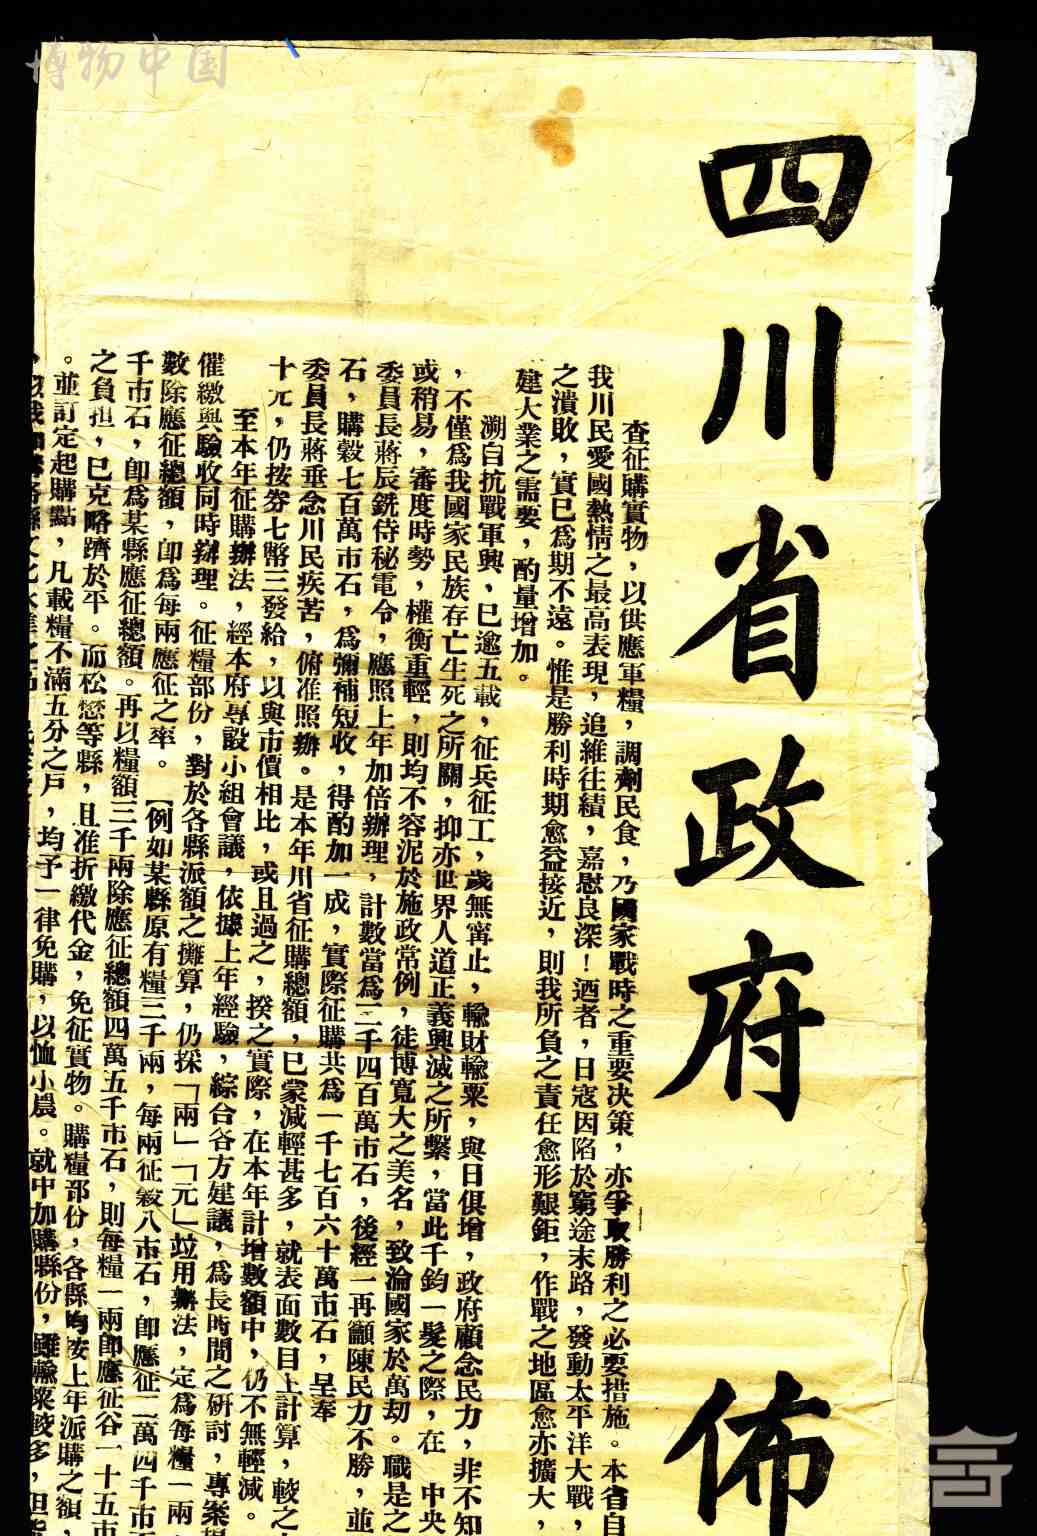 四川省政府 佈
查征購實物，以供應軍糧，調劑民食，乃國家戰時之重要決策，亦爭取勝利之必要措施。本省自
我川民愛國熱情之最高表現，追維往績，嘉慰良深！迺者，日寇因陷於窮途末路，發動太平洋大戰，
之潰敗，實已為期不遠。惟是勝利時期愈益接近，則我所負之責任愈形艱鉅，作戰之地區愈亦擴大，
建大業之需要，酌量增加。
溯自抗戰軍興，已逾五載，征兵征工，歲無寗止，輸財輸粟，與日俱增，政府顧念民力，非不知
，不僅為我國家民族存亡生死之所關，抑亦世界人道正義興滅之所繫，當此千鈞一髮之際，在 中央
或稍易，審度時勢，權衡重輕，則均不容泥於施政常例，徒博寬大之美名，致淪國家於萬劫。職是之
委員長蔣辰銑侍秘電令，應照上年加倍辦理，計數當為二千四百萬市石，後經一再籲陳民力不勝，並
石，購穀七百萬市石，為彌補短收，得酌加一成，實際征購共為一千七百六十萬市石，呈奉
委員長蔣垂念川民疾苦，俯准照辦。是本年川省征購總額，已蒙減輕甚多，就表面數目上計算，較之
十元，仍按券七幣三發給，以與市價相比，或且過之，揆之實際，在本年計增數額中，仍不無輕減。
至本年征購辦法，經本府專設小組會議，依據上年經驗，綜合各方建議，為長時間之研討，專案
催繳與驗收同時辦理。征糧部份，對於各縣派額之攤算，仍採「兩」「元」竝用辦法，定為每糧一兩
數除應征總額，卽為每兩應征之率。【例如某縣原有糧三千兩，每兩征穀八市石，卽應征二萬四千市
千市石，卽為某縣應征總額。再以糧額三千兩除應征總額四萬五千市石，則每糧一兩卽應征谷一十五市
之負担，已克略躋於平。而松懋等縣，且准折繳代金，免征實物。購糧部份，各縣均按上年派購之額，
。並訂定起購點，凡載糧不滿五分之戶，均予一律免購，以恤小農。就中加購縣份，雖輸粟較多，但
博物中国